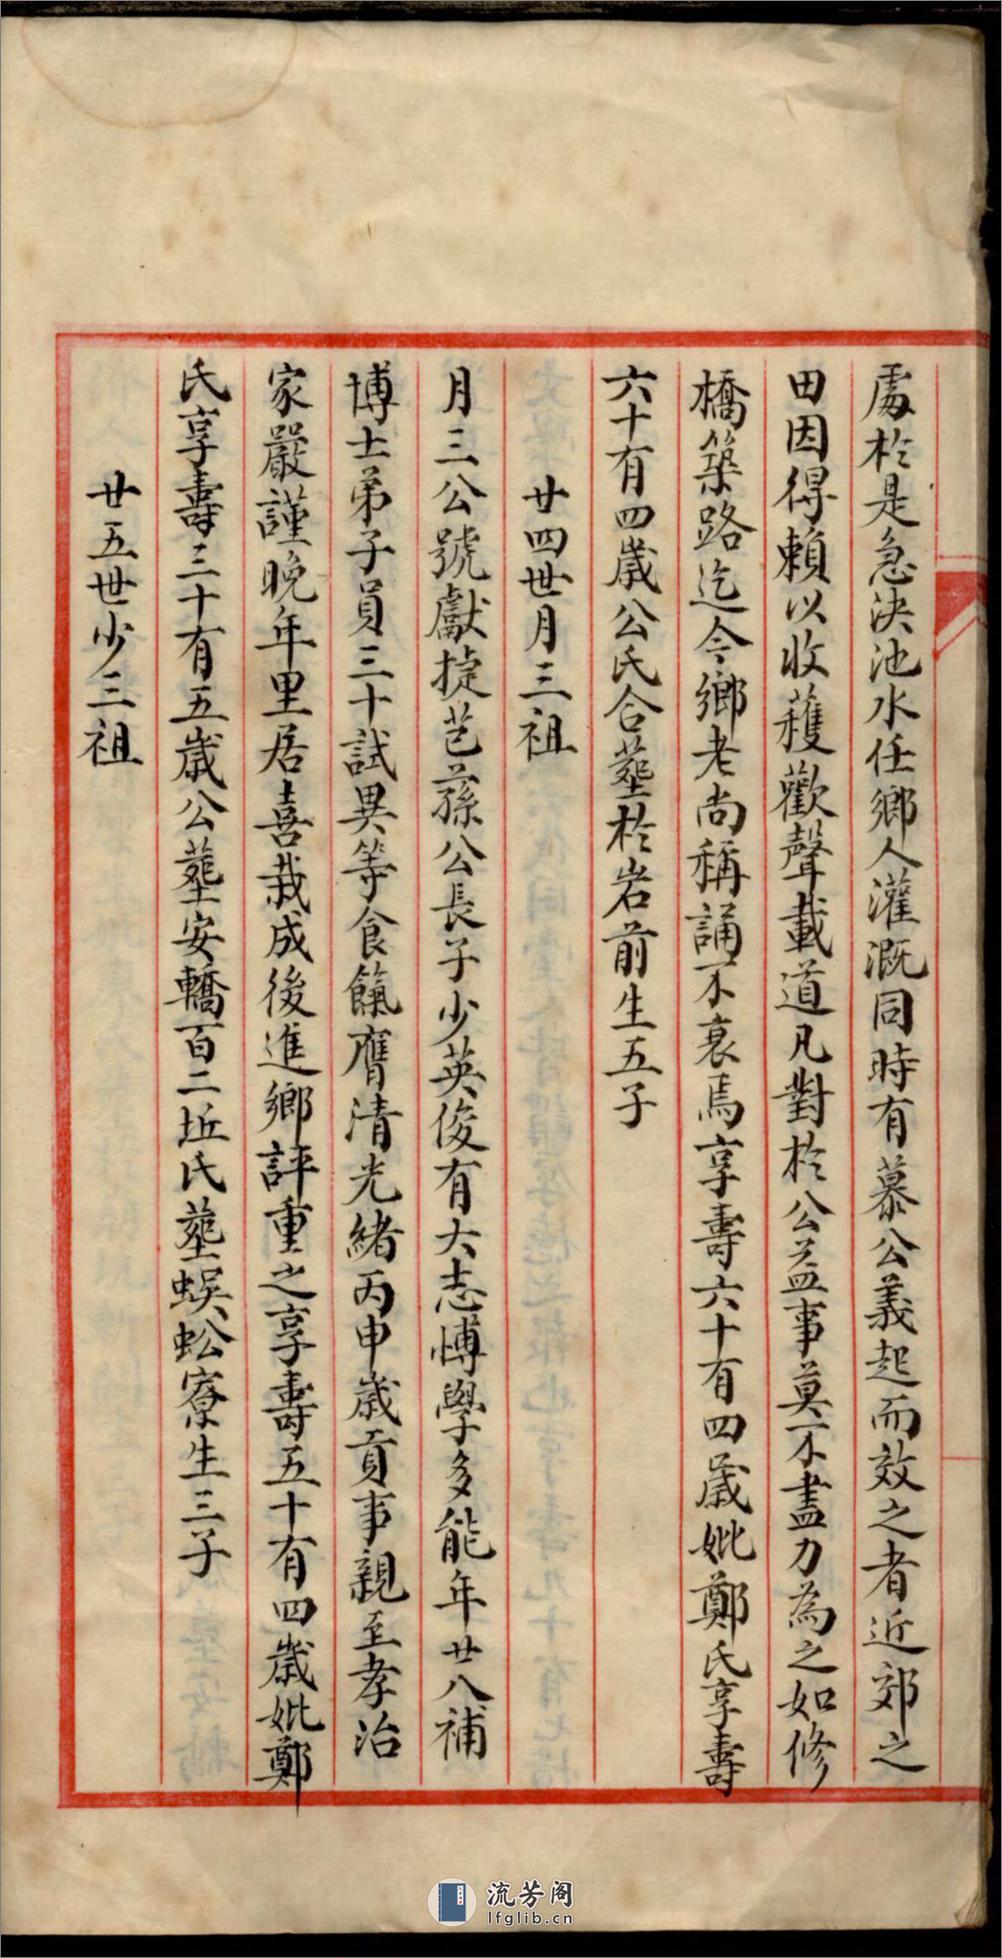 處於是急決池水任鄉人灌溉同時有慕公義起而效之者近郊之
田因得賴以收穫歡聲載道凡對於公益事莫不盡力為之如修
橋築路迄今鄉老尚稱誦不衰焉享壽六十有四歲妣鄭氏享壽
六十有四歲公氏合塟於岩前生五子
廿四世月三祖
月三公號獻捷芑蓀公長子少英俊有大志博學多能年廿八補
博士弟子員三十試異等食餼膺清光緒丙申歲貢事親至孝治
家嚴謹晚年里居喜栽成後進鄉評重之享壽五十有四歲妣鄭
氏享壽三十有五歲公塟安轎百二坵氏塟蜈蚣寮生三子
廿五世少三祖
流芳阁
lfglib.cn